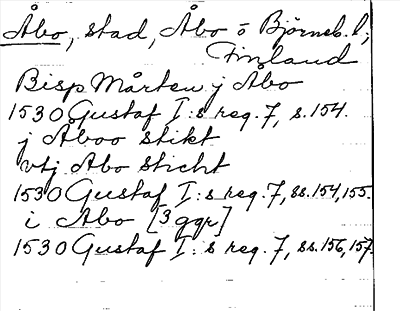 Åbo, stad, Åbo o Björneb. l;
Finland
Bisp Mårten j Åbo
1530 Gustaf I:s reg. 7, s. 154.
j Åboo stikt
vtj Abo sticht
1530 Gustaf I:s reg. 7, ss. 154, 155.
i Åbo [3 ggr]
1530 Gustaf I:s reg. 7, ss. 156, 157.